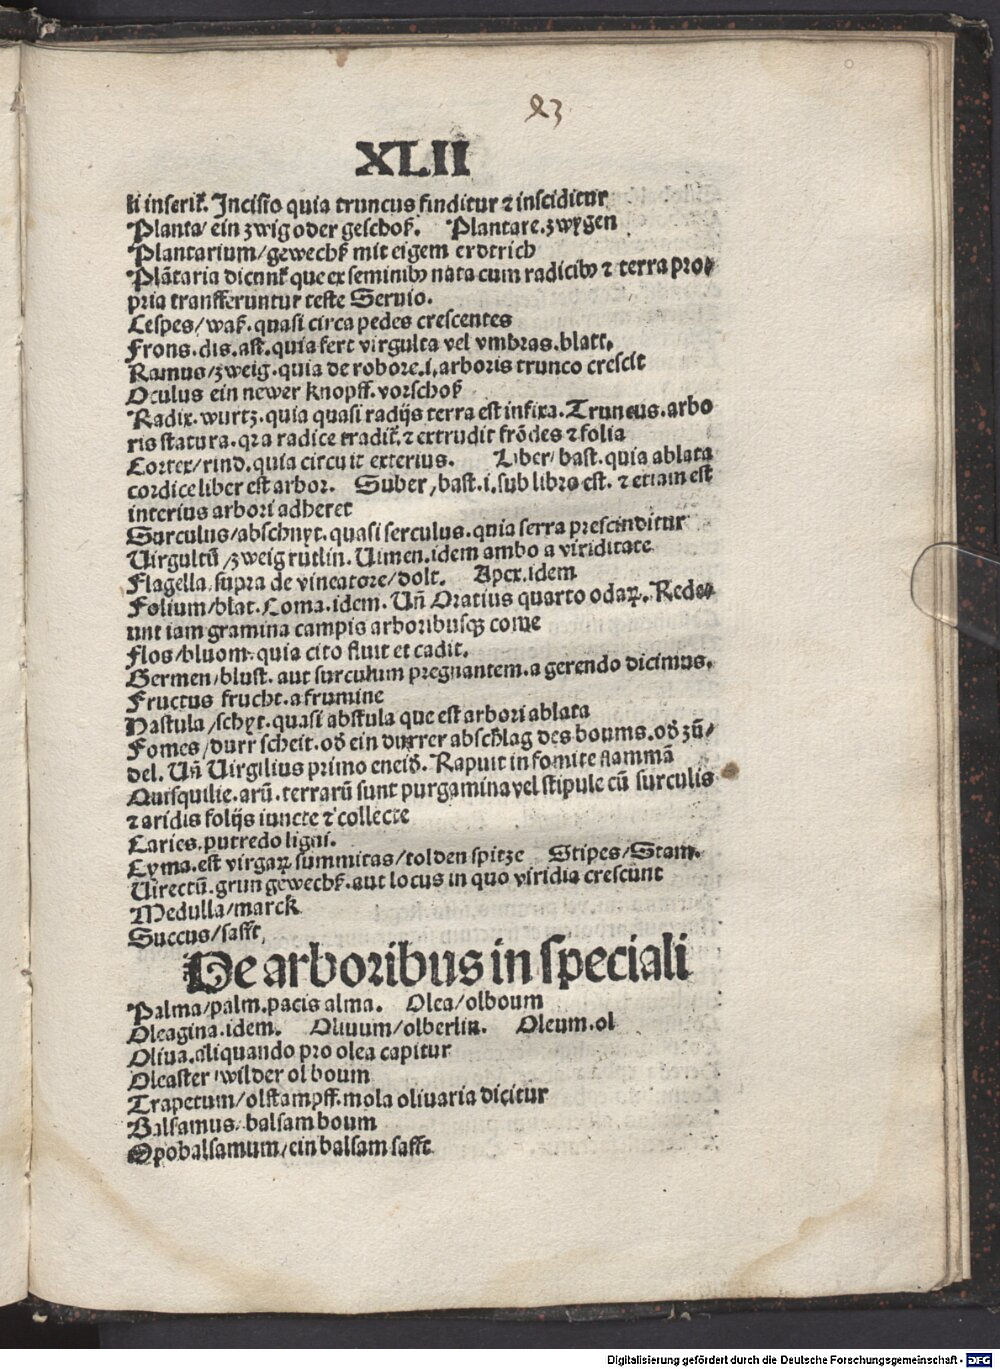 83
XLII
li inserit̃. Incisio quia truncus finditur ⁊ insciditur
Planta/ ein zwig oder geschoß. Plantare. zwygen
Plantarium/ gewechß mit eigem erdtrich
Plãtaria dicunt̃ que ex seminibꝰ nata cum radicibꝰ ⁊ terra pro⸗
pria transferuntur teste Seruio.
Cespes/ waß. quasi circa pedes crescentes
Frons. dis. ast. quia fert virgulta vel vmbras. blatt.
Ramus/ zweig. quia de robore .i. arboris trunco crescit
Oculus ein newer knopff. vorschoß
Radix. wurtz. quia quasi radijs terra est infixa. Truncus. arbo
ris statura. qꝛa radice tradit̃. ⁊ extrudit frõdes ⁊ folia
Cortex/ rind. quia circuit exterius. Liber/ bast. quia ablata
cordice liber est arbor. Suber, bast. i. sub libro est. ⁊ etiam est
interius arbori adheret
Surculus/ abschnyt. quasi serculus. quia serra prescinditur
Uirgultũ/ zweig rutlin. Uimen. idem ambo a viriditate
Flagella. supra de vineatore/ dolt. Apex. idem
Folium/ blat. Coma. idem. Uñ Oratius quarto odaꝝ. Rede⸗
unt iam gramina campis arboribusqꝫ come
Flos/ bluom. quia cito fluit et cadit.
Germen/ blust. aut surculum pregnantem. a gerendo dicimus.
Fructus frucht. a frumine
Hastula/ schyt. quasi abstula que est arbori ablata
Fomes/ durr scheit. od̃ ein durrer abschlag des boums. od̃ zũ/
del. Uñ Uirgilius primo eneid̃. Rapuit in fomite flammã
Quisquilie. arũ. terrarũ sunt purgamina vel stipule cũ surculis
⁊ aridis folijs iuncte ⁊ collecte
Caries. putredo ligni.
Cyma. est virgaꝝ summitas/ tolden spitze Stipes/ Stam.
Uirectũ. grun gewechß. aut locus in quo viridia crescunt
Medulla/ marck
Succus/ safft,
De arboribus in speciali
Palma/ palm. pacis alma. Olea/ olboum
Oleagina. idem. Oliuum/ olberlin. Oleum. ol
Oliua. aliquando pro olea capitur
Oleaster wilder olboum
Trapetum/ olstampff. mola oliuaria dicitur
Balsamus. balsam boum
Opobalsamum/ ein balsam safft
Digitalisierung gefördert durch die Deutsche Forschungsgemeinschaft - DFG